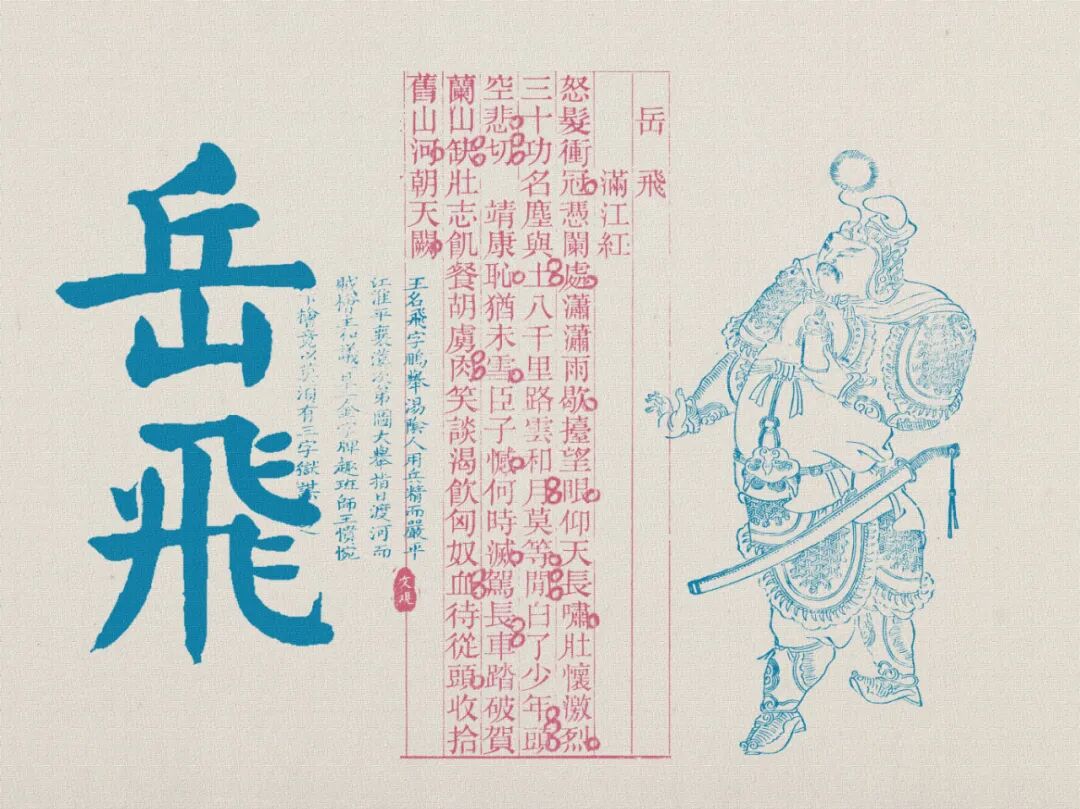 岳飛
滿江紅
怒髮衝冠憑闌處瀟瀟雨歇擡望眼仰天長嘯壯懷激烈
三十功名塵與土八千里路雲和月莫等閒白了少年頭
空悲切 靖康恥猶未雪臣子憾何時滅駕長車踏破賀
蘭山缺壯志飢餐胡虜肉笑談渴飲匈奴血待從頭收拾
舊山河朝天闕
王名飛字鵬舉湯陰人用兵精而嚴平
江淮平襄漢次第圖大舉指日渡河而
賊檜主和議 金字牌趣班師王憤惋
檜竟以莫須有三字獄
文观
岳飛